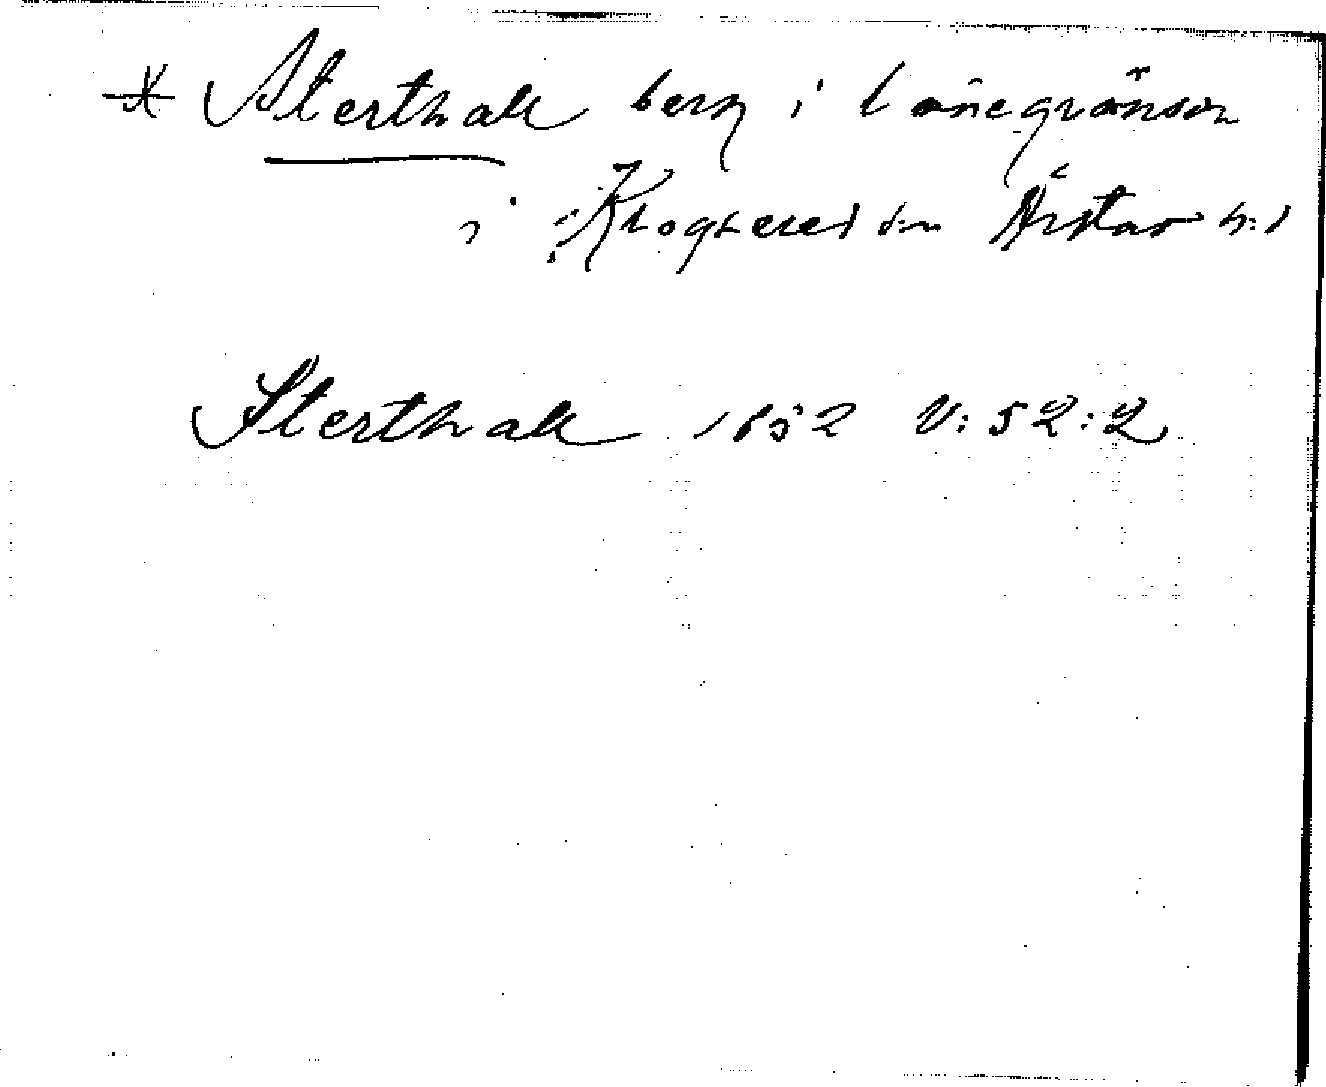 * Sterthall berg i länsgränsen
i Krogsered sn Årstad hd
Sterthall 1852 V:52:2